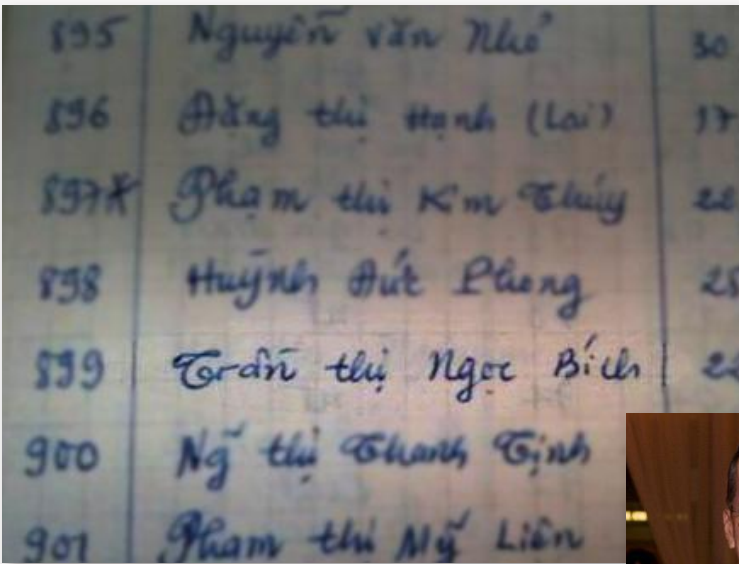 895 Nguyễn văn Nhỏ 30
896 Đặng thị Hạnh (Lai) 17
897* Phạm thị Kim Thúy 22
898 Huỳnh Đức Phong
899 Trần thị Ngọc Bích
900 Ng̃ thị Thanh Tịnh
901 Phạm thị Mỹ Liên